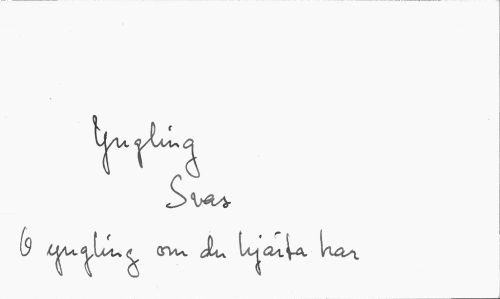 Yngling
Svas
O yngling om du hjärta har